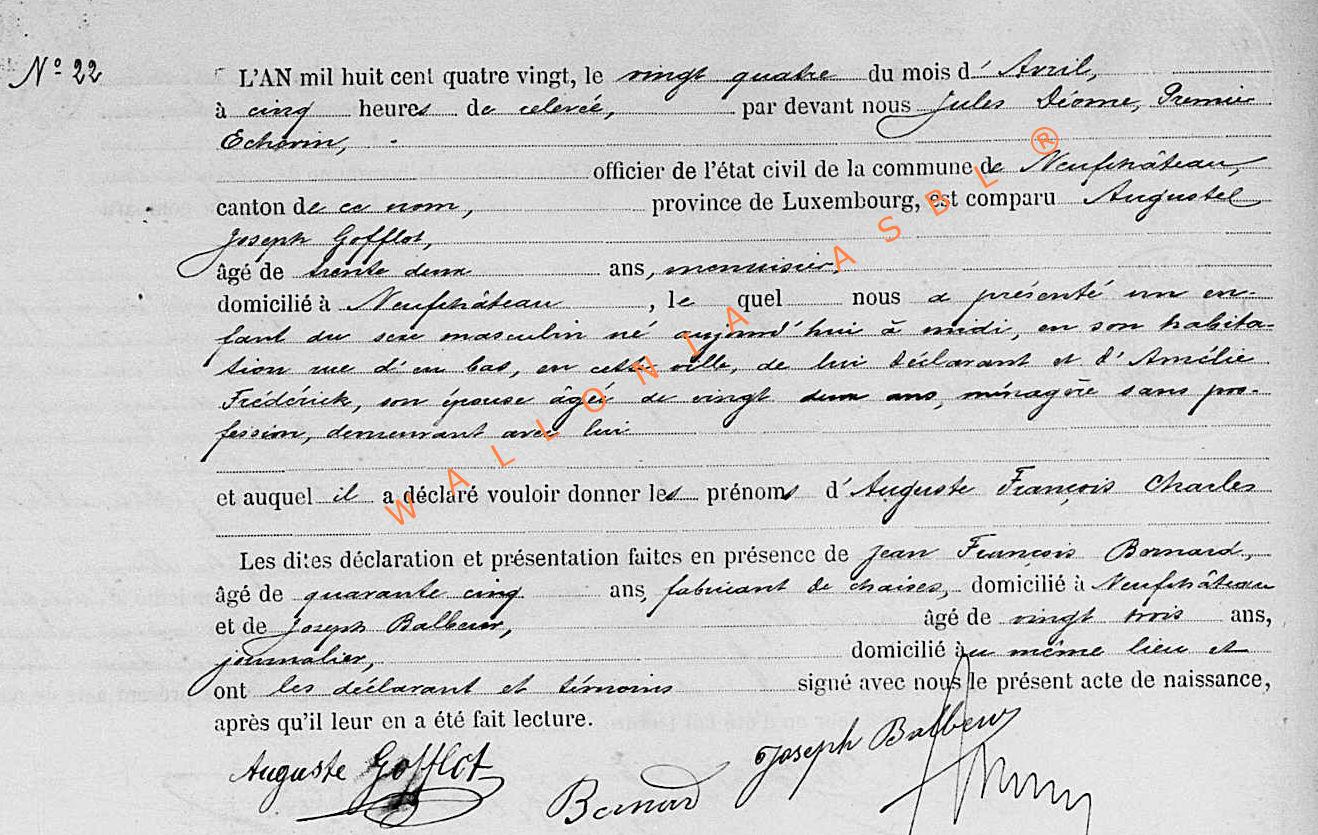 N° 22
L'AN mil huit cent quatre vingt, le vingt quatre du mois d' Avril,
à cinq heures de relevée, par devant nous Jules Déome, Premier
Echevin,
officier de l'état civil de la commune de Neufchâteau,
canton de ce nom, province de Luxembourg, est comparu Auguste
Joseph Gofflot,
âgé de trente deux ans, menuisier,
domicilié à Neufchâteau, le quel nous a présenté un en-
fant du sexe masculin né aujourd'hui à midi, en son habita-
tion rue d'en bas, en cette ville, de lui déclarant et d'Amélie
Frédérick, son épouse âgée de vingt deux ans, ménagère sans pro-
fession, demeurant avec lui
et auquel il a déclaré vouloir donner les prénoms d'Auguste François Charles
Les dites déclaration et présentation faites en présence de Jean François Bernard,
âgé de quarante cinq ans, fabricant de chaises, domicilié à Neufchâteau
et de Joseph Balbeur, âgé de vingt trois ans,
journalier, domicilié au même lieu et
ont les déclarant et témoins signé avec nous le présent acte de naissance,
après qu'il leur en a été fait lecture.
Auguste Gofflot
Bernard
Joseph Balbeur
WALLONIA ASBL ®